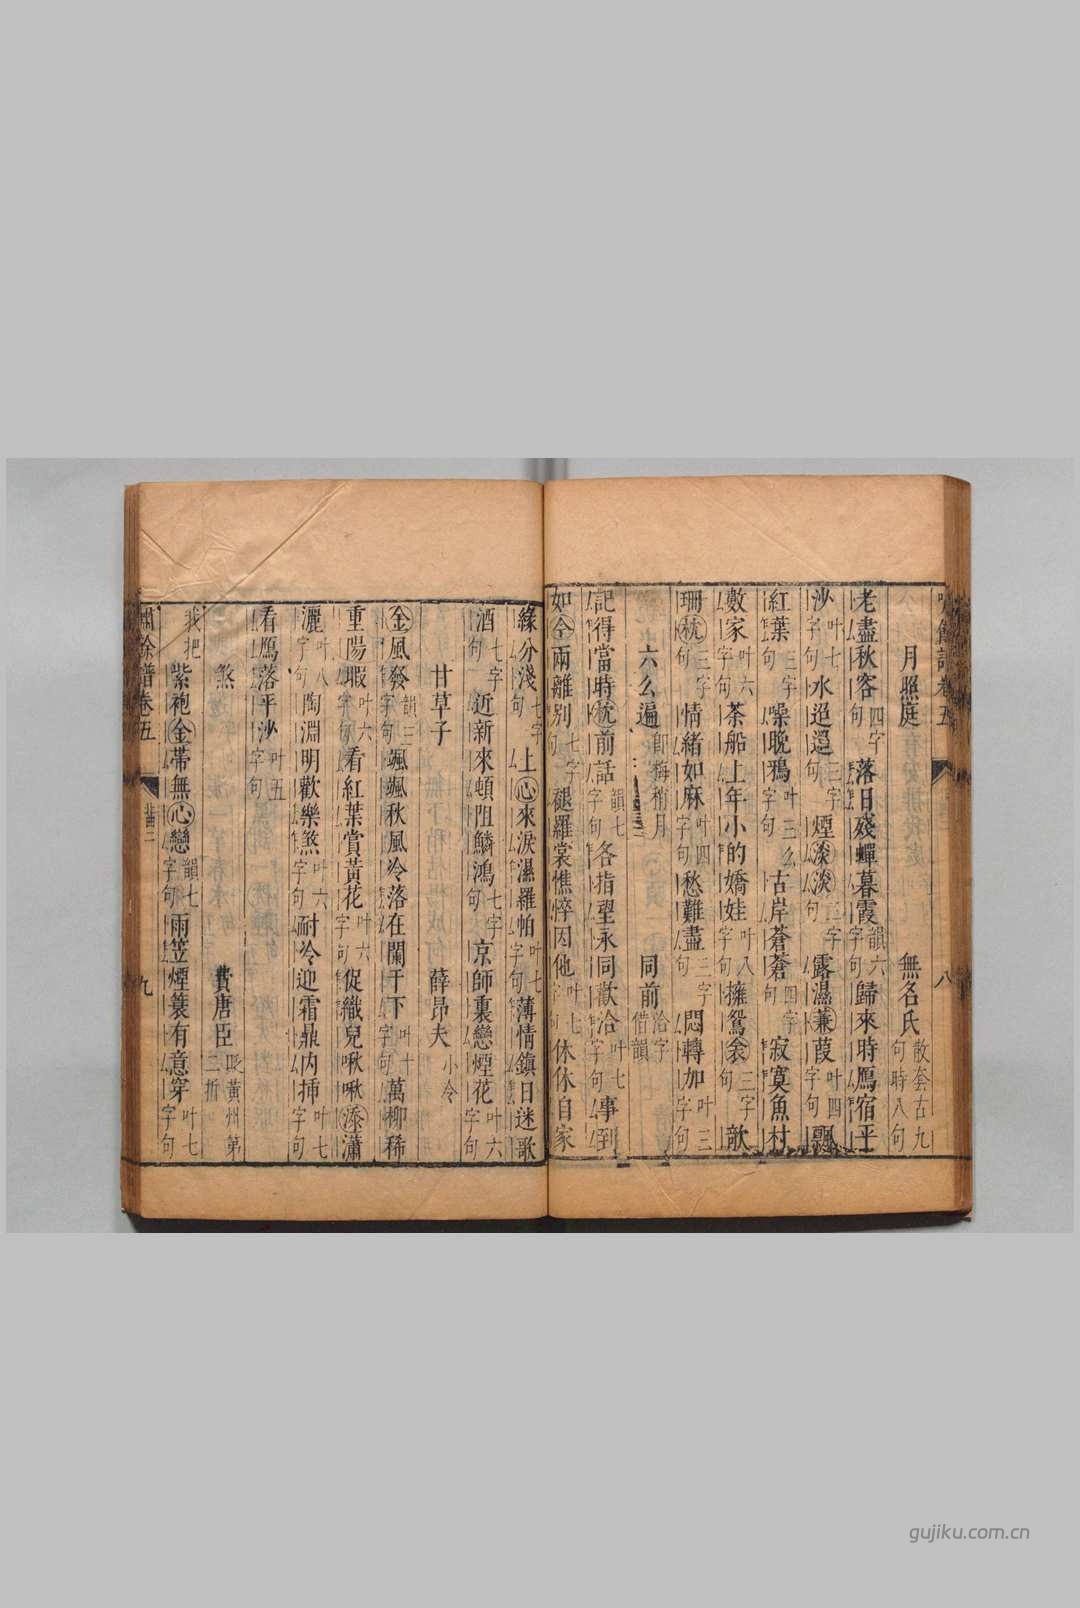 月照庭 無名氏 散套古九句時八句
老盡秋容 四字句 落日殘蟬暮霞 韻六字句 歸來時鴈宿平
沙 叶七字句 水迢迢 三字句 煙淡淡 三字句 露濕蒹葭 叶四字句 飄
紅葉 三字句 噪晚鴉 叶三字句 么 古岸蒼蒼 四字句 寂寞魚村
數家 叶六字句 茶船上年小的嬌娃 叶八字句 擁鴛衾 三字句 欹
珊枕 三字句 情緒如麻 叶四字句 愁難盡 三字句 悶轉加 叶三字句
六么遍 即梅稍月 同前 借洽字韻
記得當時枕前話 韻七字句 各指望永同歡洽 叶七字句 事到
如今兩離別 七字句 褪羅裳憔悴因他 叶七字句 休休自家
緣分淺 七字句 上心來淚濕羅帕 叶七字句 薄情鎮日迷歌
酒 七字句 近新來頓阻鱗鴻 七字句 京師裏戀煙花 叶六字句
甘草子 薛昂夫 小令
金風發 韻三字句 颯颯秋風冷落在闌干下 叶十字句 萬柳稀
重陽暇 叶六字句 看紅葉賞黃花 叶六字句 促織兒啾啾添瀟
灑 叶八字句 陶淵明歡樂煞 叶六字句 耐冷迎霜鼎內插 叶七字句
看鴈落平沙 叶五字句
煞 費唐臣 貶黃州第二折
我把 紫袍金帶無心戀 韻七字句 雨笠煙蓑有意穿 叶七字句
嘯餘譜卷五
北曲二
九
八
gujiku.com.cn